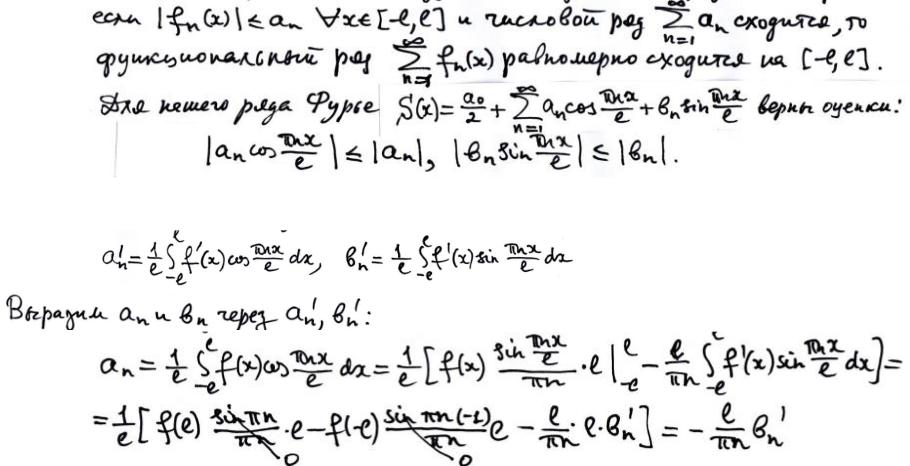 если |fₙ(x)| ≤ aₙ ∀x∈[-ℓ,ℓ] и числовой ряд ∑_{n=1}^{∞} aₙ сходится, то
функциональный ряд ∑_{n=1}^{∞} fₙ(x) равномерно сходится на [-ℓ,ℓ].
Для нашего ряда Фурье S(x) = a₀/2 + ∑_{n=1}^{∞} aₙ cos πnx/ℓ + bₙ sin πnx/ℓ верны оценки:
|aₙ cos πnx/ℓ| ≤ |aₙ|, |bₙ sin πnx/ℓ| ≤ |bₙ|.
aₙ' = 1/ℓ ∫_{-ℓ}^{ℓ} f'(x) cos πnx/ℓ dx, bₙ' = 1/ℓ ∫_{-ℓ}^{ℓ} f'(x) sin πnx/ℓ dx
Выразим aₙ и bₙ через aₙ', bₙ':
aₙ = 1/ℓ ∫_{-ℓ}^{ℓ} f(x) cos πnx/ℓ dx = 1/ℓ [ f(x) (sin πnx/ℓ)/(πn) · ℓ |_{-ℓ}^{ℓ} − ℓ/πn ∫_{-ℓ}^{ℓ} f'(x) sin πnx/ℓ dx ] =
= 1/ℓ [ f(ℓ) (sin πn)/(πn) · ℓ − f(-ℓ) (sin πn(-1))/(πn) ℓ − ℓ/πn · ℓ · bₙ' ] = − ℓ/πn bₙ'
0 0